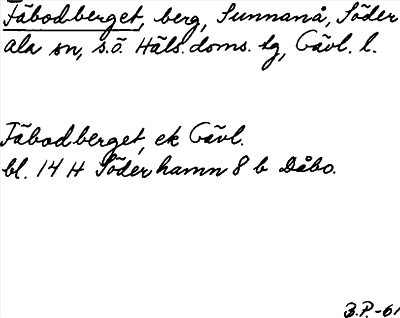 Fäbodberget, berg, Sunnanå, Söder
ala sn, s.ö. Häls. doms. tg, Gävl. l.
Fäbodberget, ek Gävl.
bl. 14 H Söderhamn 8 b Dåbo.
B.P.-61